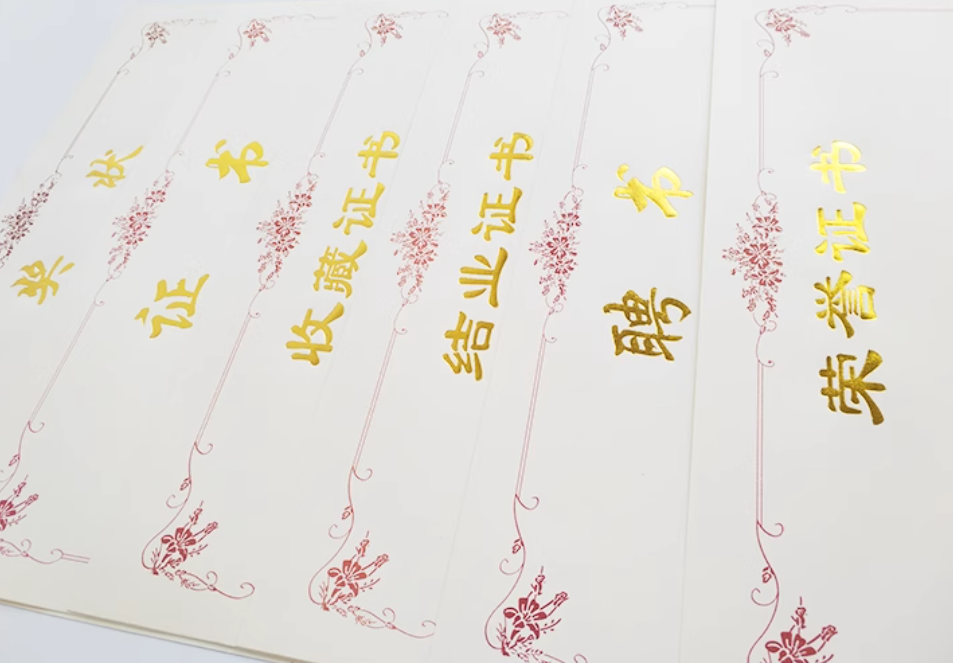 奖状
证书
收藏证书
结业证书
聘书
荣誉证书